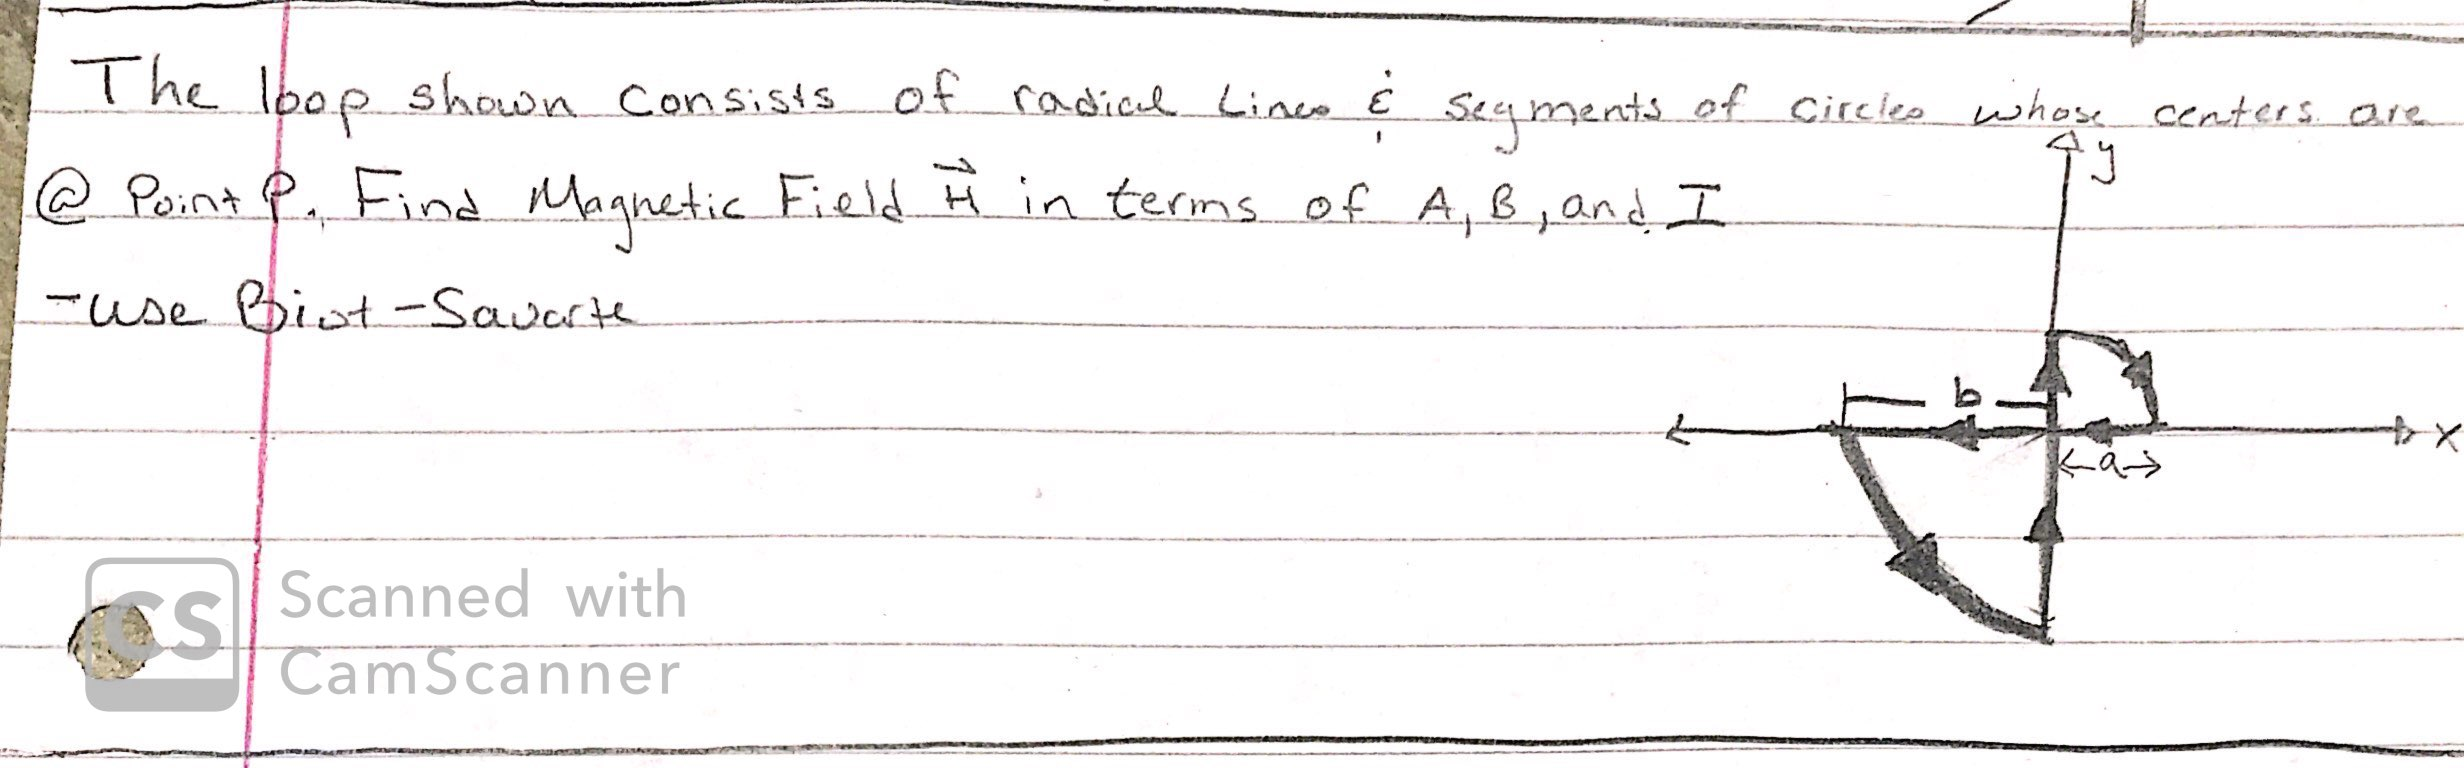 The loop shown consists of radical Lines & segments of circles whose centers are
@ Point P. Find Magnetic Field H in terms of A, B, and I
-use Biot-Savarte
y
b
x
a
CS Scanned with
CamScanner